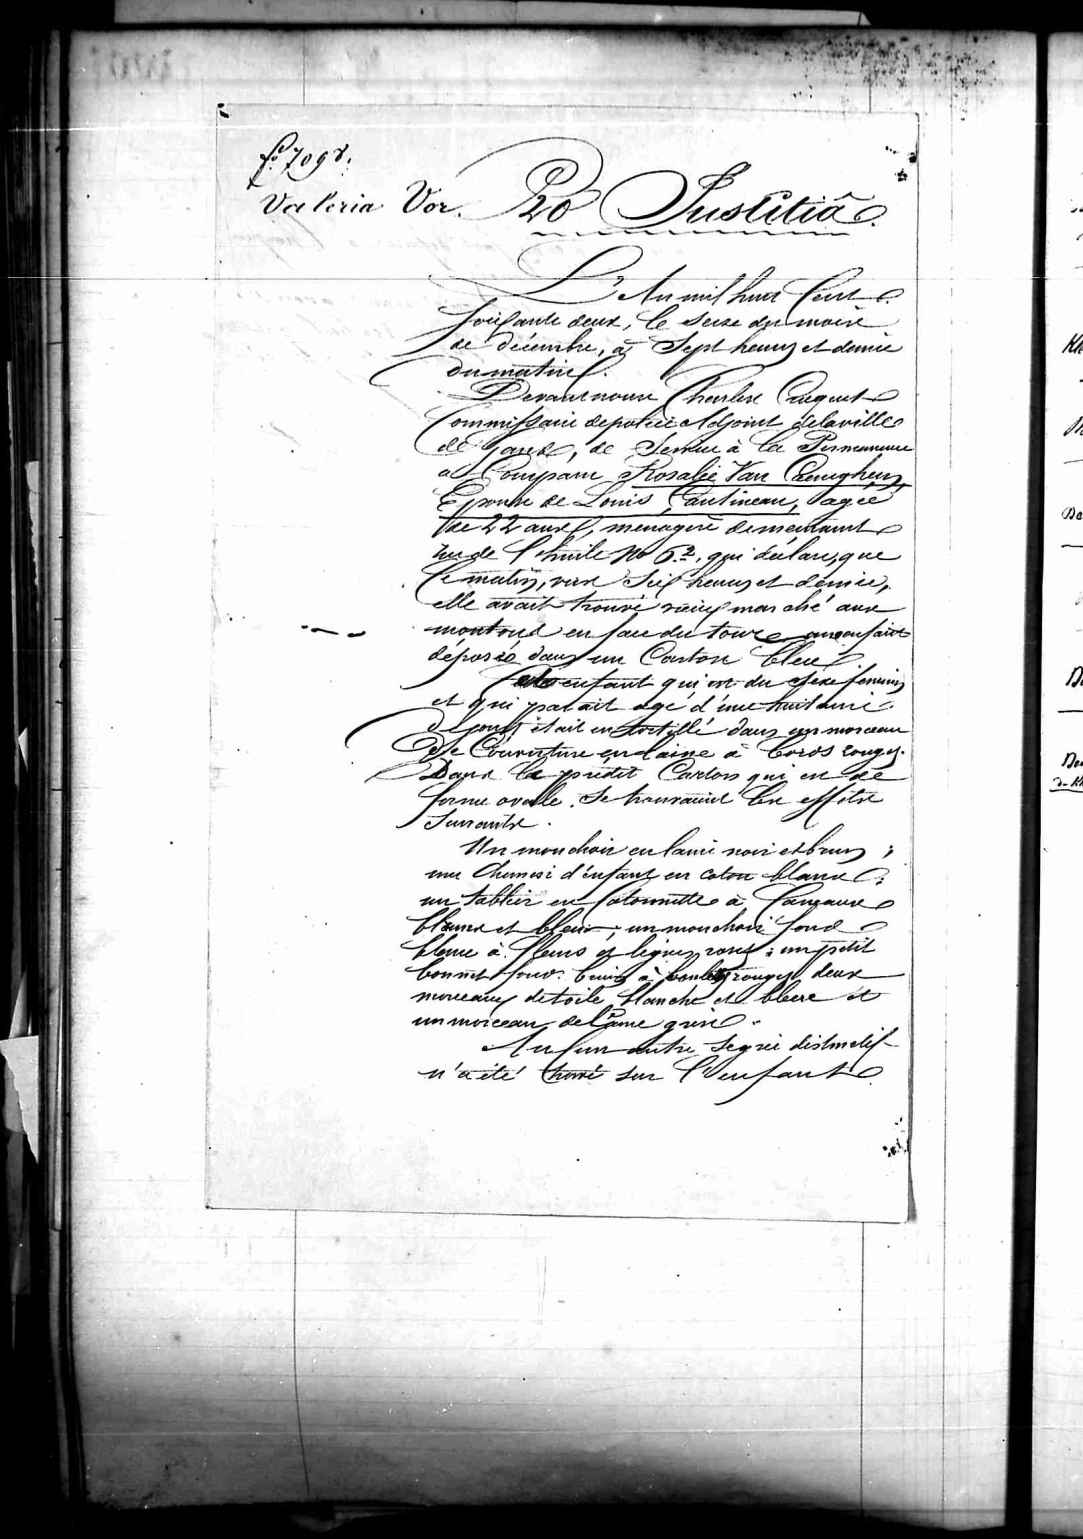 f° 709 v.
Valeria Vor.
Pro Justitiâ.
L'An mil huit Cent
soixante deux, le seize du mois
de décembre, à Sept heures et demie
du matin.
Devant nous Charles
Commissaire de police adjoint de la ville
de Gand, de Service à la Permanence
a Comparu Rosalie Van
Epouse de Louis Cantineau, agée
de 22 ans, menagère demeurant
rue de l'Huile No 62, qui déclare, que
ce matin, vers Six heures et demie,
elle avait trouvé vieux marché aux
moutons en face du tour un enfant
déposé dans un Carton bleu
enfant qui est du sexe feminin
et qui parait agé d'une huitaine
de jours, était entortillé dans un morceau
de Couverture en laine à bords rouges.
Dans le prédit Carton qui est de
forme ovale, se trouvaient les effets
suivants.
Un mouchoir en laine noir et brun ;
une chemise d'enfant en coton blanc ;
un tablier en Cotonnette à Carreaux
blancs et bleus ; un mouchoir fond
blanc à fleurs et lignes roses ; un petit
bonnet fond brun à boules rouges, deux
morceaux de toile blanche et bleue et
un morceau de laine grise.
Aucun autre signe distinctif
n'a été trouvé sur l'enfant